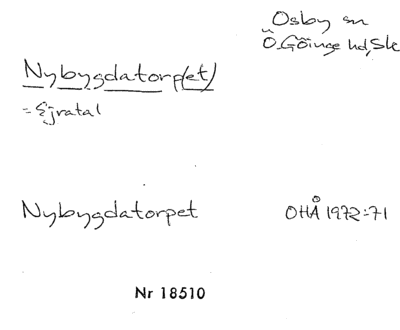 Osby sn
Ö.Göinge hd, Sk
Nybygdatorp(et)
= Ejratal
Nybygdatorpet
OHÅ 1972:71
Nr 18510